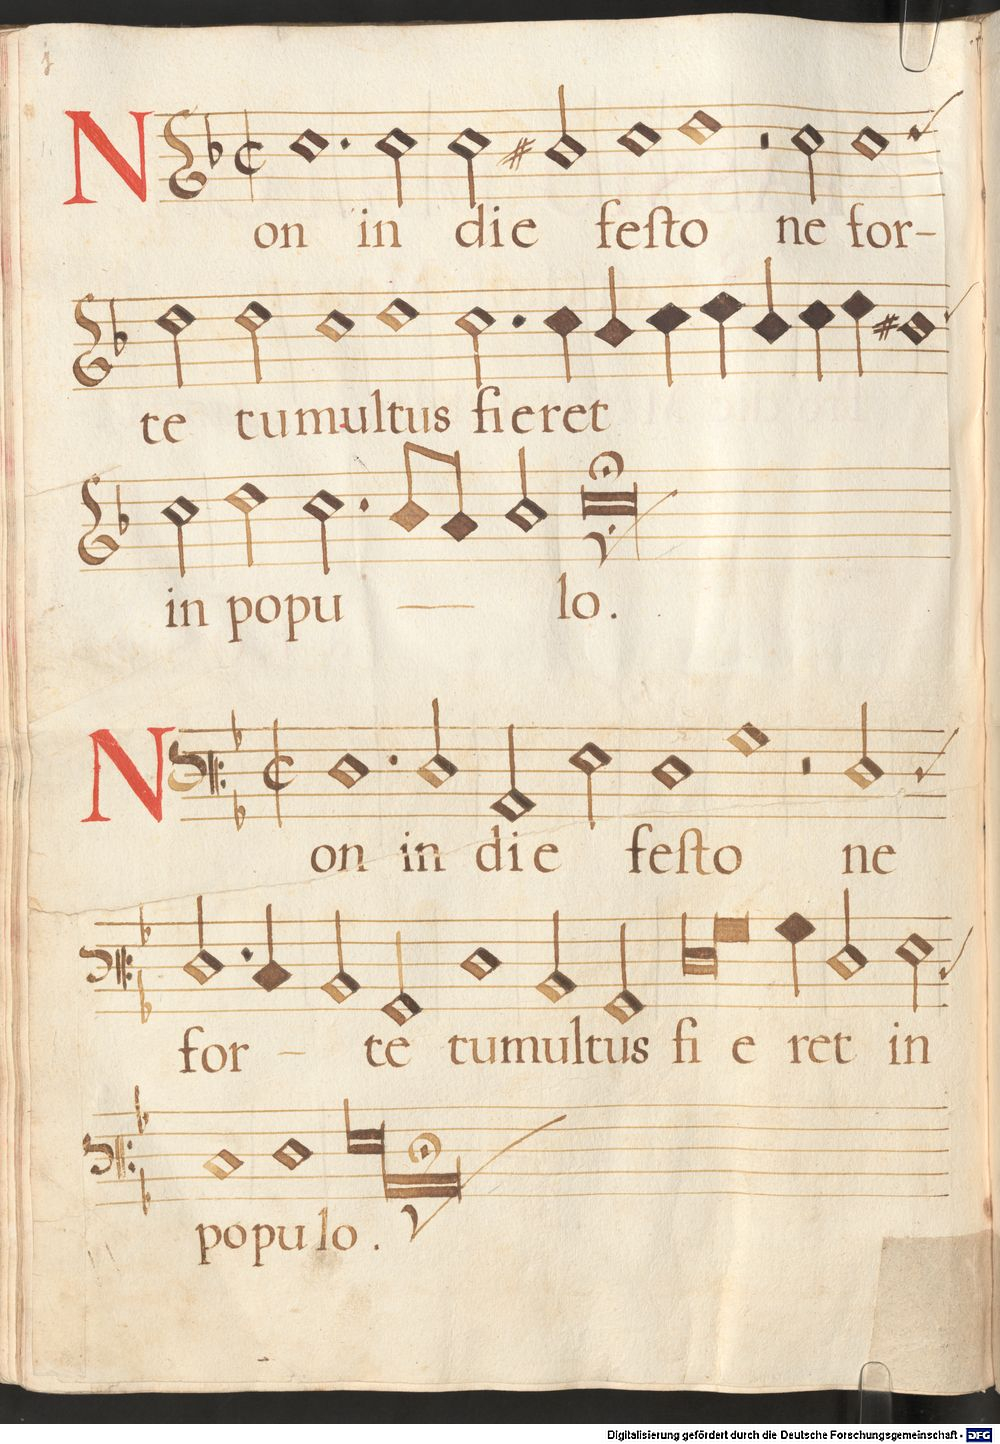 Non in die feſto ne for-
te tumultus fieret
in popu — lo.
Non in die feſto ne
for - te tumultus fi e ret in
popu lo.
Digitalisierung gefördert durch die Deutsche Forschungsgemeinschaft - DFG